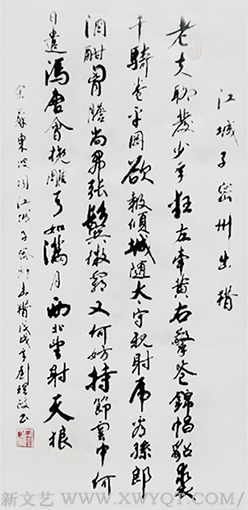 江城子密州出猎
老夫聊發少年狂左牵黄右擎苍錦帽貂裘
千騎卷平岡欲報傾城随太守親射虎看孫郎
酒酣胸膽尚開張鬓微霜又何妨持節雲中何
日遣馮唐會挽雕弓如满月西北望射天狼
宋蘇東坡詞江城子密州出猎戊戌年劉
新文艺 WWW.XWYQ1.COM